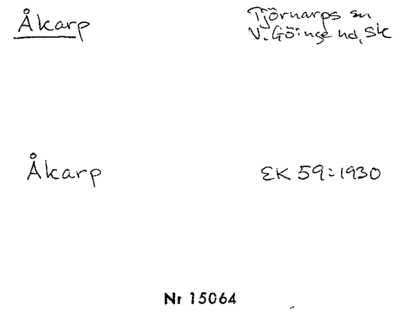 Åkarp
Tjörnarps sn
V. Göinge hd, Sk
Åkarp
EK 59:1930
Nr 15064